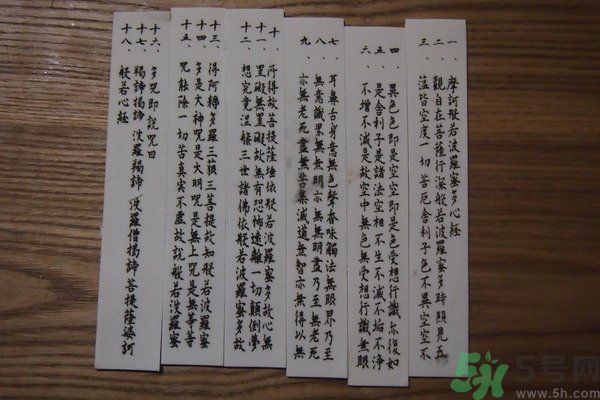 一、摩訶般若波羅蜜多心経
二、觀自在菩薩行深般若波羅蜜多時照見五
三、蘊皆空度一切苦厄舍利子色不異空空不
四、異色色即是空空即是色受想行識亦復如
五、是舍利子是諸法空相不生不滅不垢不浄
六、不增不減是故空中無色無受想行識無眼
七、耳鼻舌身意無色聲香味觸法無眼界乃至
八、無意識界無無明亦無無明盡乃至無老死
九、亦無老死盡無苦集滅道無智亦無得以無
十、所得故菩提薩埵依般若波羅蜜多故心無
十一、罣礙無罣礙故無有恐怖遠離一切顛倒夢
十二、想究竟涅槃三世諸佛依般若波羅蜜多故
十三、得阿耨多羅三藐三菩提故知般若波羅蜜
十四、多是大神咒是大明咒是無上咒是無等等
十五、咒能除一切苦真実不虛故說般若波羅蜜
十六、多咒即說咒曰
十七、揭諦揭諦 波羅揭諦 波羅僧揭諦 菩提薩婆訶
十八、般若心経
5号网
www.5h.com